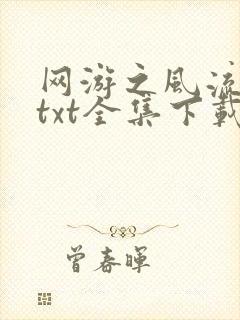 网游之风流
txt全集下载
曾春晖